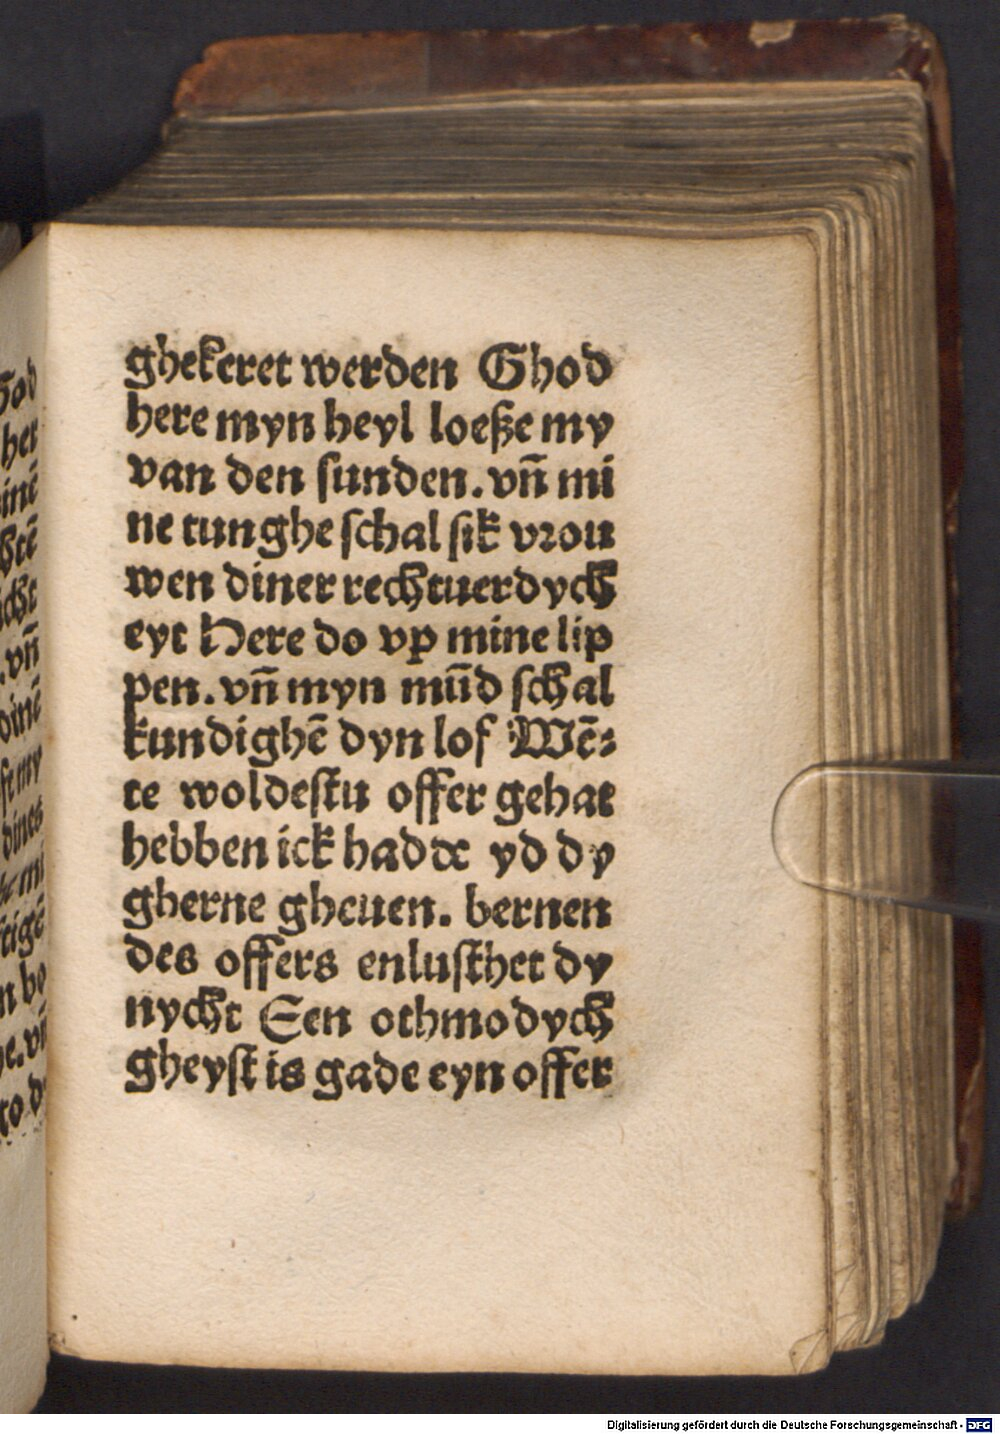 ghekeret werden Ghod
here myn heyl loeße my
van den sunden. vn̄ mi
ne tunghe schal sik vrou
wen diner rechtuerdych
eyt Here do vp mine lip
pen. vn̄ myn mūd schal
kundighē dyn lof Wē⸗
te woldestu offer gehat
hebben ick hadde yd dy
gherne gheuen. bernen
des offers enlusthet dy
nycht Een othmodych
gheyst is gade eyn offer
Digitalisierung gefördert durch die Deutsche Forschungsgemeinschaft - DFG